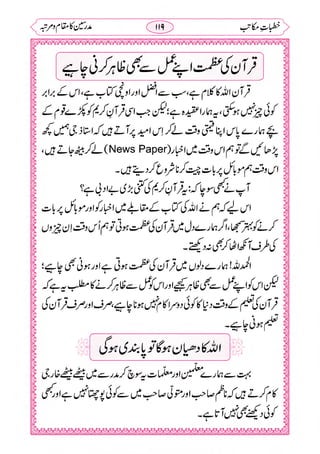 خطباتِ مکاتب ۱۱۹ مدرسین کا مقام و مرتبہ
قرآن کی عظمت اپنے عمل سے بھی ظاہر کرنی چاہیے
قرآن اللہ کا کلام ہے، بس، سب سے افضل اور اونچی کتاب ہے، اس کے برابر
کوئی چیز نہیں ہو سکتی، یہ ہمارا عقیدہ ہے؛ لیکن جب اسی قرآنِ کریم کو پڑھانے کے لیے قوم کے
بچے ہمارے پاس اپنا قیمتی وقت لے کر اس امید پر آتے ہیں کہ استاذ جی ہمیں کچھ
پڑھائیں گے تو ہم اس وقت میں اخبار (News Paper) لے کر بیٹھ جاتے ہیں،
اس وقت ہم موبائل پر بات چیت کرنا شروع کر دیتے ہیں۔
آپ نے کبھی سوچا کہ: یہ قرآنِ کریم کی کتنی بڑی بے ادبی ہے؟
اس لیے کہ ہم نے اللہ کی کتاب کے مقابلے میں اخبار کو اور موبائل پر بات
کرنے کو بہتر سمجھا، اگر ہمارے دل میں قرآن کی عظمت ہوتی تو ہم اُس وقت اِن چیزوں
کی طرف آنکھ اٹھا کر بھی نہ دیکھتے۔
الحمد للہ! ہمارے دلوں میں قرآن کی عظمت ہوتی ہے اور ہونی بھی چاہیے؛
لیکن اس کو اپنے عمل سے بھی ظاہر کیجیے اور عمل سے ظاہر کرنے کا مطلب یہ ہے کہ
قرآن کی تعلیم کے وقت دنیا کا کوئی کام دوسرا نہیں ہونا چاہیے، صرف اور صرف قرآن کی
تعلیم ہونی چاہیے۔
اللہ کا دھیان ہوگا تو پابندی ہوگی
بہت سے ہمارے معلمین اور معلمات یہ سوچ کر مدرسے میں بیٹھے بیٹھے خارجی
کام کرتے ہیں کہ ناظم صاحب اور متولی صاحب میں سے کوئی پوچھتا نہیں ہے اور کبھی
کوئی دیکھنے بھی نہیں آتا ہے۔